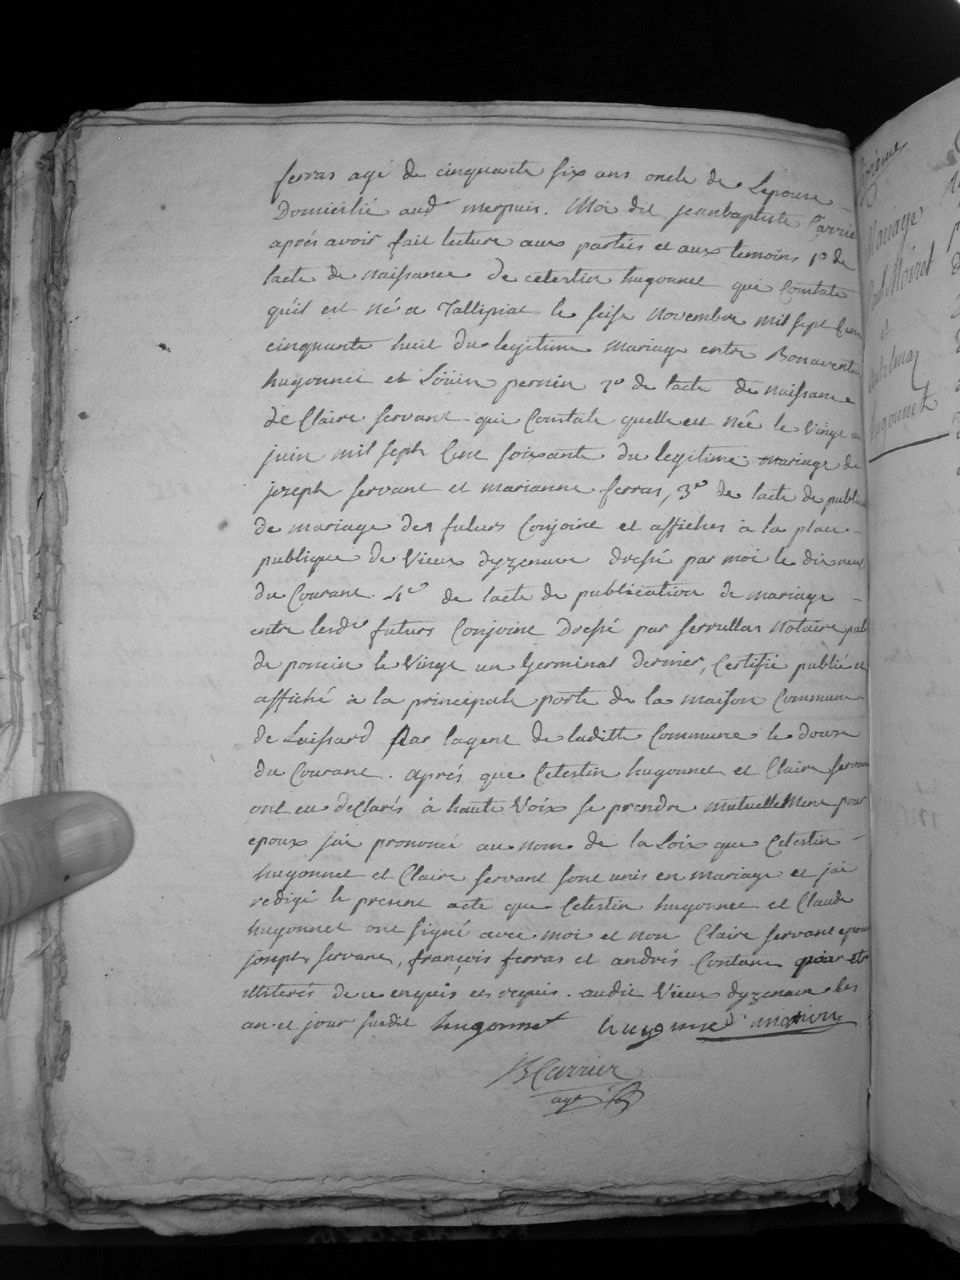 ferras agé de cinquante six ans oncle de Lepouse
Domicilié aud merpuis. Moi dit jeanbaptiste Carrie
aprés avoir fait lecture aux parties et aux temoins 1º de
lacte de naissance de celestin hugonnet qui Constate
quil est Né a Jallipiat le seise Novembre mil sept Cen
cinquante huit du legitime mariage entre Bonaventu
hugonnet et Loüise pernin 2º de lacte de naissance
de Claire servant qui Constate quelle est Née le vingt un
juin mil sept Cent soixante du legitime mariage de
joseph servant et marianne ferras, 3º de lacte de public
de mariage des futurs Conjoint et affiches à la place
publique de Vieux dyzenave dressé par moi le dix neuf
du Courant. 4º de lacte de publication de mariage
entre lesd futurs Conjoint Dressé par servillas Notaire publ
de poncin le Vingt un Germinal dernier, Certifié publié et
affiché à la principale porte de la maison Commune
de Laissard par lagent de laditte Commune le douze
du Courant. aprés que Celestin hugonnet et Claire servan
ont eu declarés à haute Voix se prendre mutuellement pour
epoux jai prononcé au nom de la Loix que Celestin
hugonnet et Claire servant sont unis en mariage et jai
redigé le present acte que Celestin hugonnet et Claude
hugonnet ont signé avec moi et non Claire servant epouse
joseph servant, françois ferras et andrés Contant pour etre
illiterés de ce enquis et requis. audit Vieux dyzenave les
an et jour susdit hugonnet hugonnet
JB Carrier
agt
Mariage
Paul Moiret
et
hugonnet